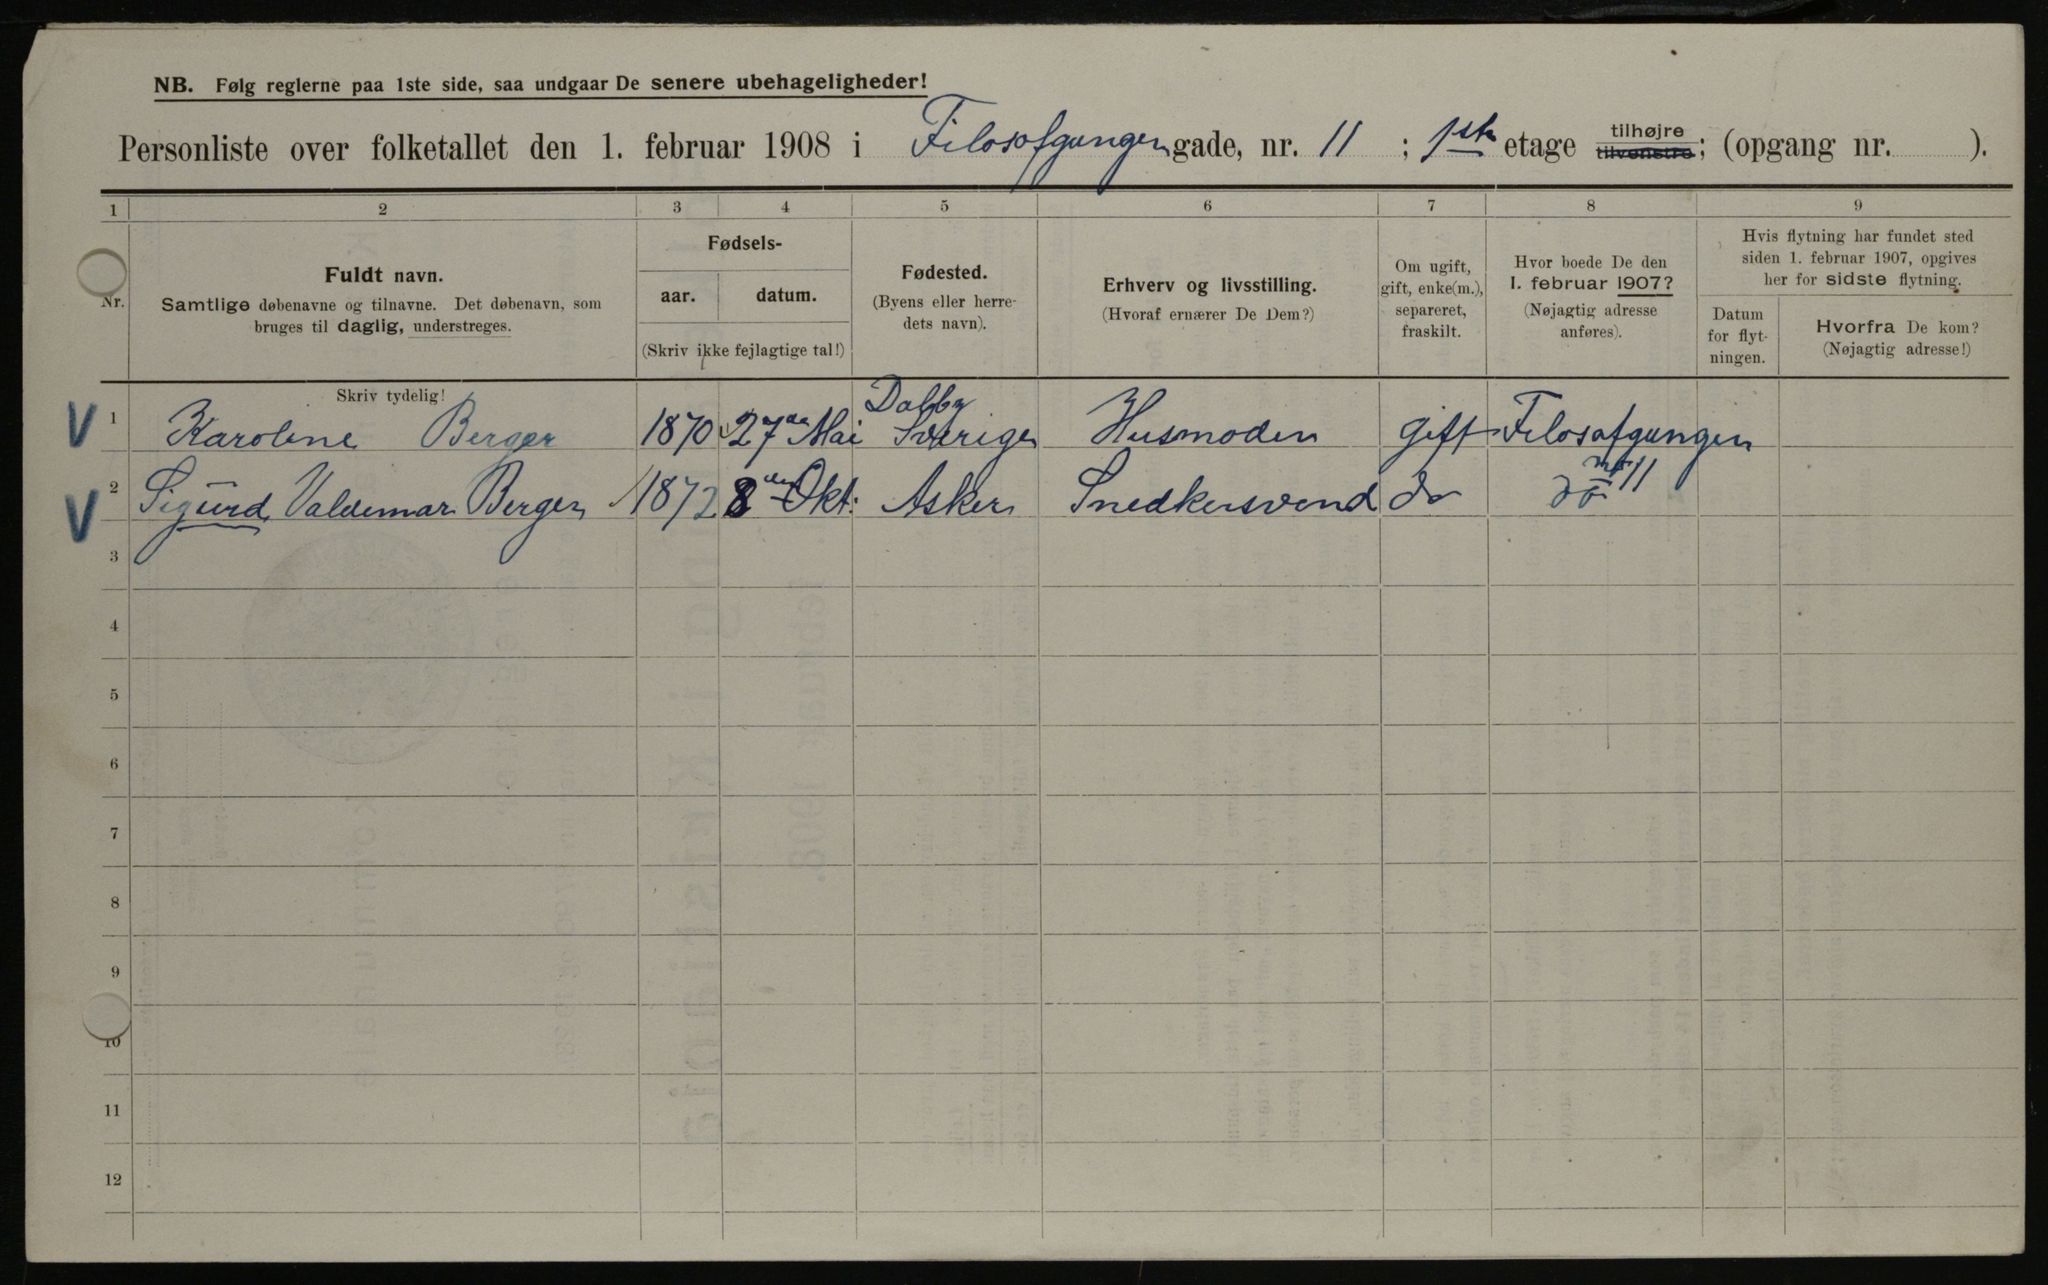 NB. Følg reglerne paa 1ste side, saa undgaar De senere ubehageligheder!
Personliste over folketallet den 1. februar 1908 i Filosofgangen gade, nr. 11 ; 1ste etage tilhøjre tilvenstre; (opgang nr. ).
1 2 3 4 5 6 7 8 9
Nr.
Fuldt navn.
Samtlige døbenavne og tilnavne. Det døbenavn, som
bruges til daglig, understreges.
Fødsels-
aar. datum.
(Skriv ikke fejlagtige tal!)
Fødested.
(Byens eller herre-
dets navn).
Erhverv og livsstilling.
(Hvoraf ernærer De Dem?)
Om ugift,
gift, enke(m.),
separeret,
fraskilt.
Hvor boede De den
1. februar 1907?
(Nøjagtig adresse
anføres).
Hvis flytning har fundet sted
siden 1. februar 1907, opgives
her for sidste flytning.
Datum
for flyt-
ningen.
Hvorfra De kom?
(Nøjagtig adresse!)
Skriv tydelig!
V 1 Karoline Berger 1870 27de Mai Dalby Sverige Husmoder gift Filosofgangen
V 2 Sigurd Valdemar Berger 1872 8de Okt: Asker Snedkersvend do do nr 11
3
4
5
6
7
8
9
10
11
12